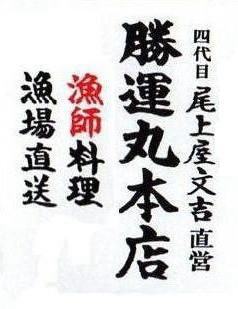 四代目 尾上屋文吉 直営
勝運丸本店
漁師料理
漁場直送